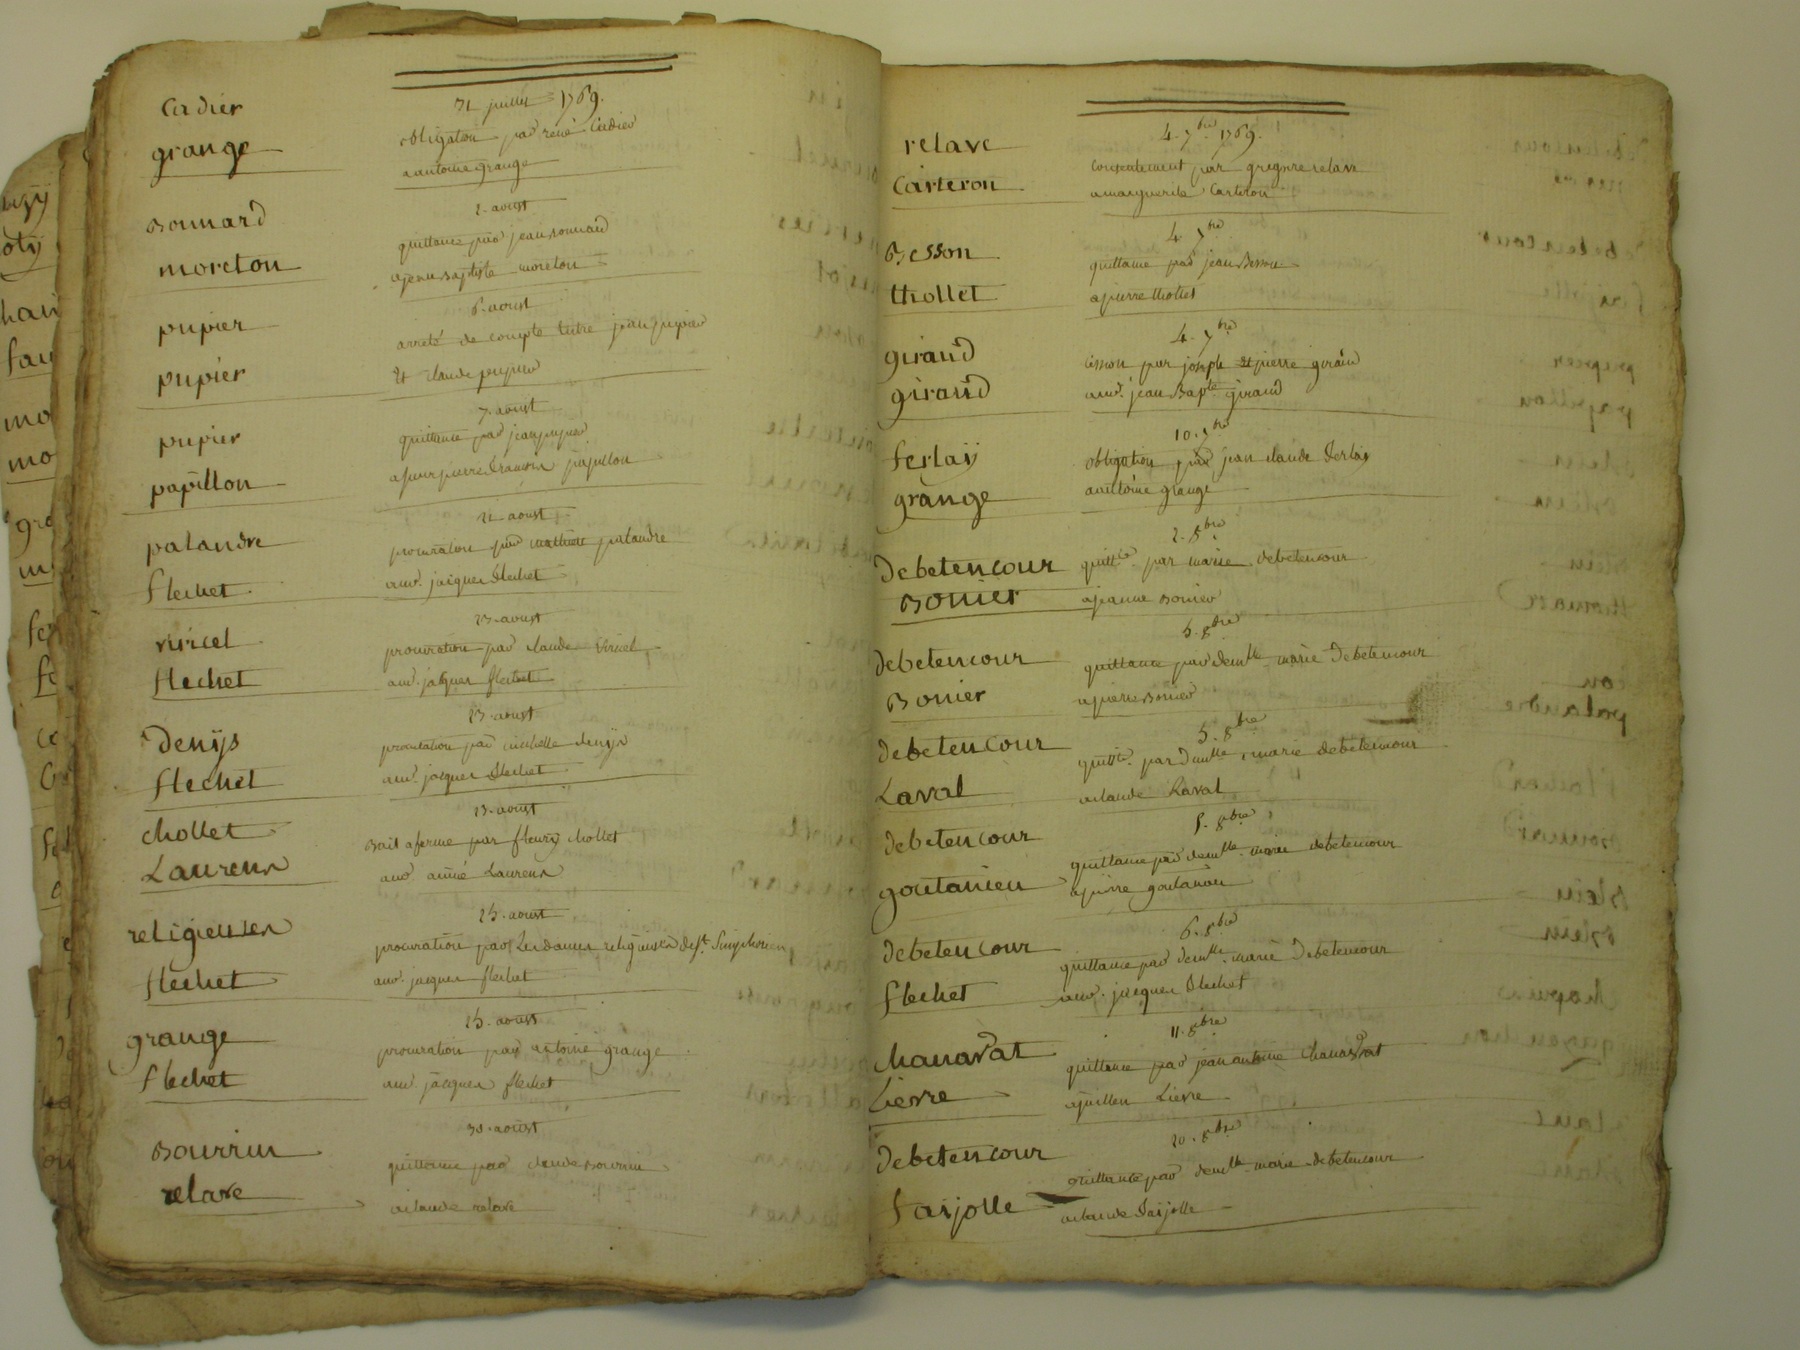 Cadier
grange
31 juillet 1769.
obligation par rené Cadier
a antoine grange
Bonnard
moreton
2. aoust
quittance par jean Bonnard
a jean Baptiste moreton
pupier
pupier
6. aoust
arreté de compte entre jean pupier
et claude pupier
pupier
papillon
7. aoust
quittance par jean pupier
a pierre francois papillon
palandre
flechet
21 aoust
procuration par mathieu palandre
a md. jacques flechet
viricel
flechet
23. aoust
procuration par claude viricel
a md. jacques flechet
Denys
flechet
23. aoust
procuration par denys
a md. jacques flechet
chollet
Laurens
23. aoust
Bail a ferme par fleury chollet
a md aimé Laurens
religieuses
flechet
25. aoust
procuration par Les dames religieuses de st. Simphorien
a md. jacques flechet
grange
flechet
25. aoust
procuration par antoine grange
a md. jacques flechet
Bourrin
relave
30. aoust
quittance par claude Bourrin
a claude relave
relave
Carteron
4. 7bre 1769.
consentement par gregoire relave
a marguerite Carteron
Besson
thollet
4 7bre
quittance par jean Besson
a pierre thollet
giraud
giraud
4. 7bre
cession par joseph et pierre giraud
a md. jean Bapte. giraud
ferlay
grange
10. 7bre
obligation par jean claude ferlay
a antoine grange
Debetencour
Bonier
2. 8bre
quittce. par marie debetencour
a jeanne Bonier
debetencour
Bonier
5. 8bre
quittance par demlle. marie Debetencour
a pierre Bonier
debetencour
Laval
5. 8bre
quittce. par demlle. marie debetencour
a claude Laval
debetencour
goutanieu
5. 8bre
quittance par demlle. marie debetencour
a pierre goutanieu
debetencour
flechet
6. 8bre
quittance par demlle. marie Debetencour
a md. jacques flechet
chanavat
Lievre
11. 8bre
quittance par jean antoine chanavat
a julien Lievre
debetencour
farjolle
20. 8bre
quittance par demlle. marie debetencour
a claude farjolle